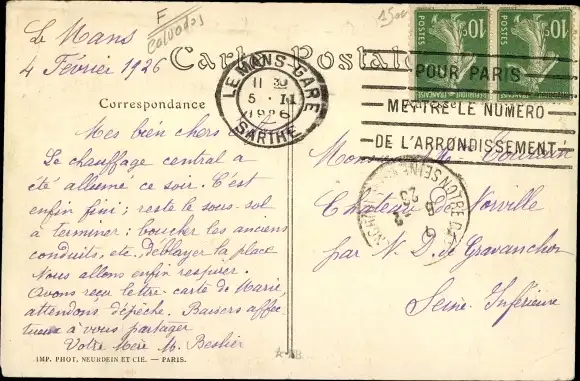 F
Calvados
Le Mans
4 Février 1926
Carte Postale
Correspondance
Mes bien chers
Le chauffage central a
été allumé ce soir. C'est
enfin fini ; reste le sous-sol
à terminer : boucher les anciens
conduits, etc, déblayer la place
Nous allons enfin respirer.
Avons reçu lettre-carte de Marie,
attendons dépêche. Baisers affec-
tueux à vous partager
Votre Mère M.
IMP. PHOT. NEURDEIN ET CIE. — PARIS.
LE MANS-GARE
5 - II
1926
SARTHE
10c
POSTES
10c
POSTES
POUR PARIS
METTRE LE NUMERO
DE L'ARRONDISSEMENT
Château de Norville
par N. D. de Gravenchon
Seine Inférieure